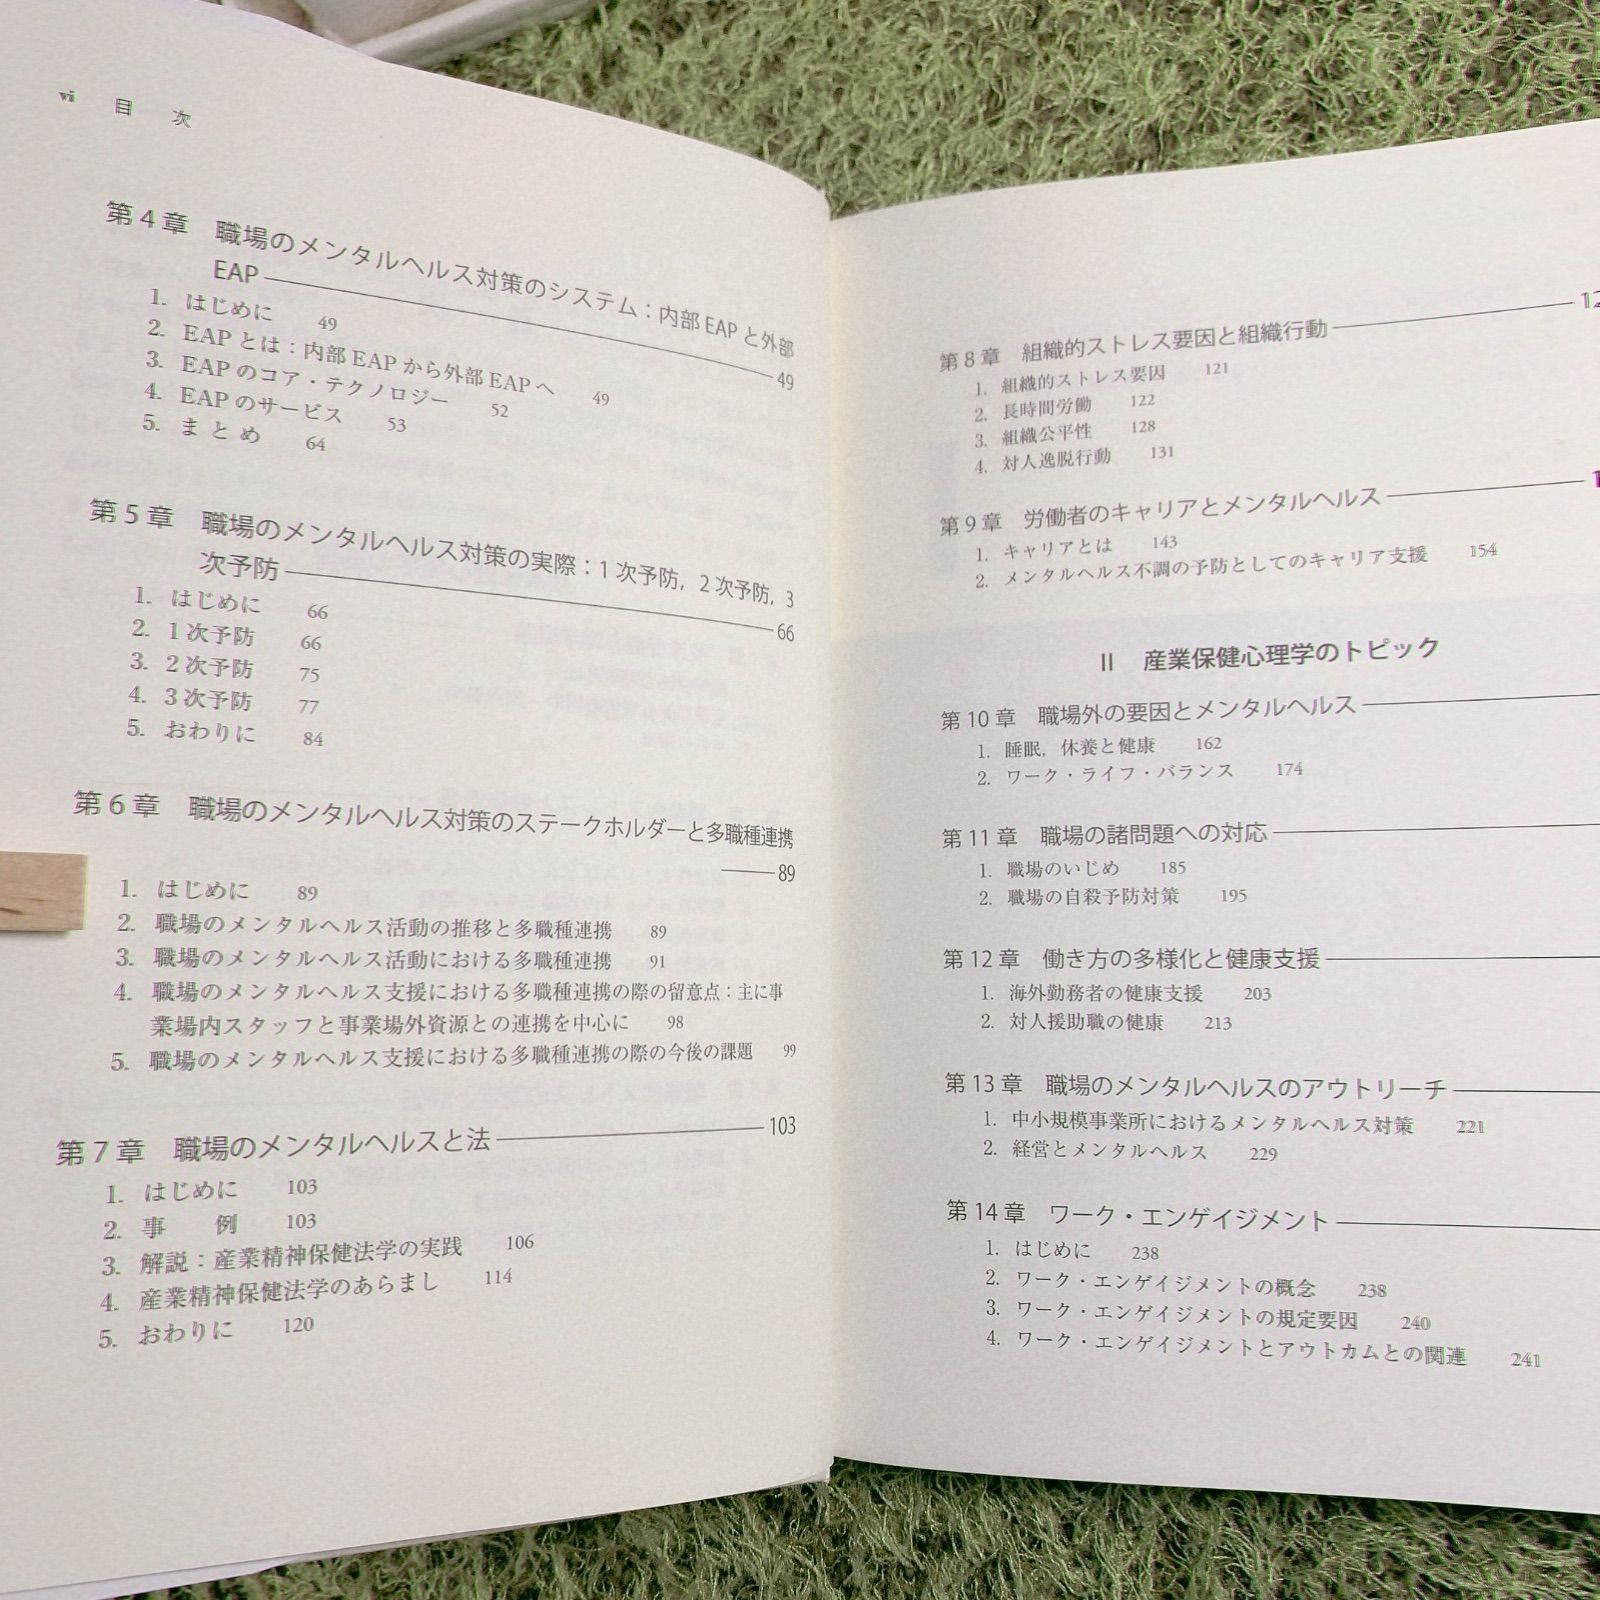 vi 目次
第4章 職場のメンタルヘルス対策のシステム：内部EAPと外部
EAP 49
1. はじめに 49
2. EAPとは：内部EAPから外部EAPへ 49
3. EAPのコア・テクノロジー 52
4. EAPのサービス 53
5. まとめ 64
第5章 職場のメンタルヘルス対策の実際：1次予防，2次予防，3
次予防 66
1. はじめに 66
2. 1次予防 66
3. 2次予防 75
4. 3次予防 77
5. おわりに 84
第6章 職場のメンタルヘルス対策のステークホルダーと多職種連携
89
1. はじめに 89
2. 職場のメンタルヘルス活動の推移と多職種連携 89
3. 職場のメンタルヘルス活動における多職種連携 91
4. 職場のメンタルヘルス支援における多職種連携の際の留意点：主に事
業場内スタッフと事業場外資源との連携を中心に 98
5. 職場のメンタルヘルス支援における多職種連携の際の今後の課題 99
第7章 職場のメンタルヘルスと法 103
1. はじめに 103
2. 事例 103
3. 解説：産業精神保健法学の実践 106
4. 産業精神保健法学のあらまし 114
5. おわりに 120
第8章 組織的ストレス要因と組織行動
1. 組織的ストレス要因 121
2. 長時間労働 122
3. 組織公平性 128
4. 対人逸脱行動 131
第9章 労働者のキャリアとメンタルヘルス
1. キャリアとは 143
2. メンタルヘルス不調の予防としてのキャリア支援 154
II 産業保健心理学のトピック
第10章 職場外の要因とメンタルヘルス
1. 睡眠，休養と健康 162
2. ワーク・ライフ・バランス 174
第11章 職場の諸問題への対応
1. 職場のいじめ 185
2. 職場の自殺予防対策 195
第12章 働き方の多様化と健康支援
1. 海外勤務者の健康支援 203
2. 対人援助職の健康 213
第13章 職場のメンタルヘルスのアウトリーチ
1. 中小規模事業所におけるメンタルヘルス対策 221
2. 経営とメンタルヘルス 229
第14章 ワーク・エンゲイジメント
1. はじめに 238
2. ワーク・エンゲイジメントの概念 238
3. ワーク・エンゲイジメントの規定要因 240
4. ワーク・エンゲイジメントとアウトカムとの関連 241